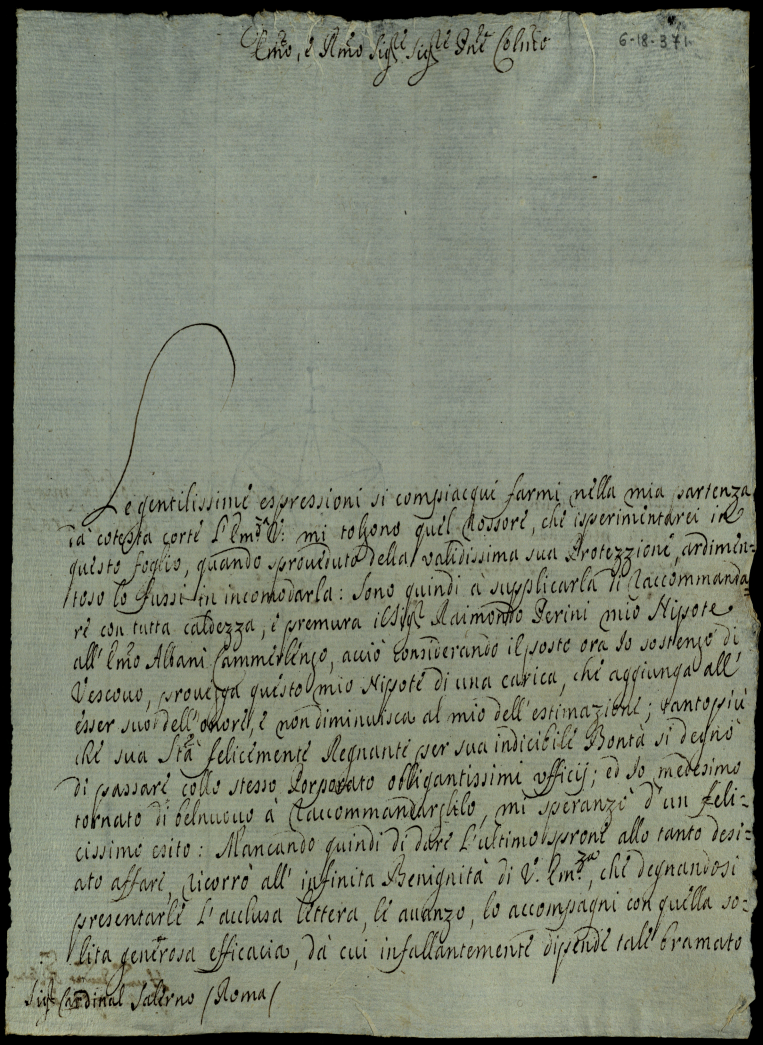 Em̃o, e Rm̃o Sig.re Sig.re Pn͠e Colmo
6-18-371
Le gentilissime espressioni si compiacque farmi nella mia partenza
da cotesta corte l'Em.za V. mi tolgono quel rossore, che isperimentarei in
questo foglio, quando sproveduto della validissima sua Protezzione, ardimen-
toso lo fussi in incomodarla: Sono quindi à supplicarla di raccommanda-
re con tutta caldezza, e premura il Sig.r Raimondo Perini mio Nipote
all' Em̃o Albani Cammerlengo, acciò considerando il posto ora Io sostengo di
Vescouo, proueg̃a questo mio Nipote di una carica, che aggiunga all'
esser suo dell'onore, e non diminuisca al mio dell'estimazione; tantopiù
che sua St̃a felicemente Regnante per sua indicibile Bontà si degnò
di passare collo stesso Porporato obligantissimi vfficij; ed Io medesimo
tornato di belnuouo à raccommandarglielo, mi speranzè d'un feli-
cissimo esito: Mancando quindi di dare l'ultimo sprone allo tanto desi-
ato affare, ricorro all' infinita Benignità di V. Em.za, che degnandosi
presentarle l'acclusa lettera, le auanzo, lo accompagni con quella so-
lita generosa efficacia, da cui infallantemente dipende tale bramato
Sig.r Cardinal Salerno (Roma(